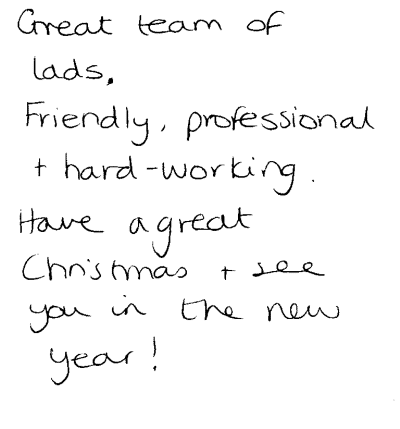 Great team of
lads.
Friendly, professional
+ hard-working.
Have a great
Christmas + see
you in the new
year!